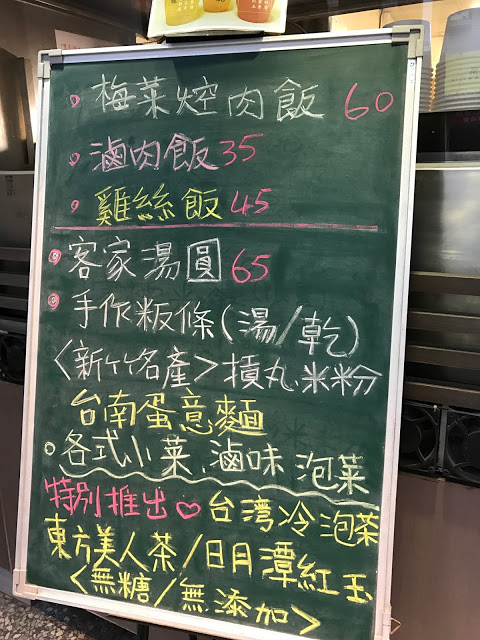 梅菜焢肉飯 60
滷肉飯 35
雞絲飯 45
客家湯圓 65
手作粄條(湯/乾)
<新竹名產>摃丸.米粉
台南蛋意麵
各式小菜.滷味 泡菜
特別推出♡台灣冷泡茶
東方美人茶/日月潭紅玉
<無糖/無添加>